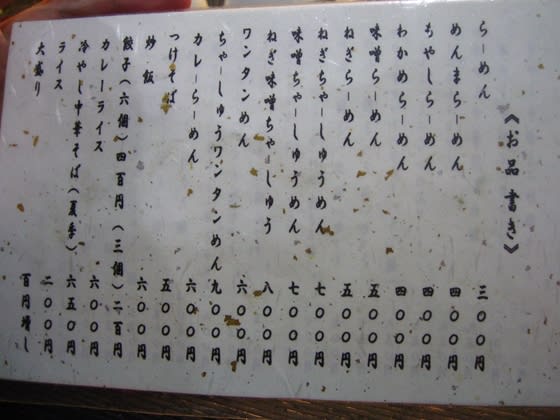 《お品書き》
らーめん 三〇〇円
めんまらーめん 四〇〇円
もやしらーめん 四〇〇円
わかめらーめん 四〇〇円
味噌らーめん 五〇〇円
ねぎらーめん 五〇〇円
ねぎちゃーしゅうめん 七〇〇円
味噌ちゃーしゅうめん 七〇〇円
ねぎ味噌ちゃーしゅう 八〇〇円
ワンタンめん 六〇〇円
ちゃーしゅうワンタンめん 九〇〇円
カレーらーめん 六〇〇円
つけそば 五〇〇円
炒飯 六〇〇円
餃子(六個)四百円(三個)二百円
カレーライス 六〇〇円
冷やし中華そば(夏季) 六五〇円
ライス 二〇〇円
大盛り 百円増し